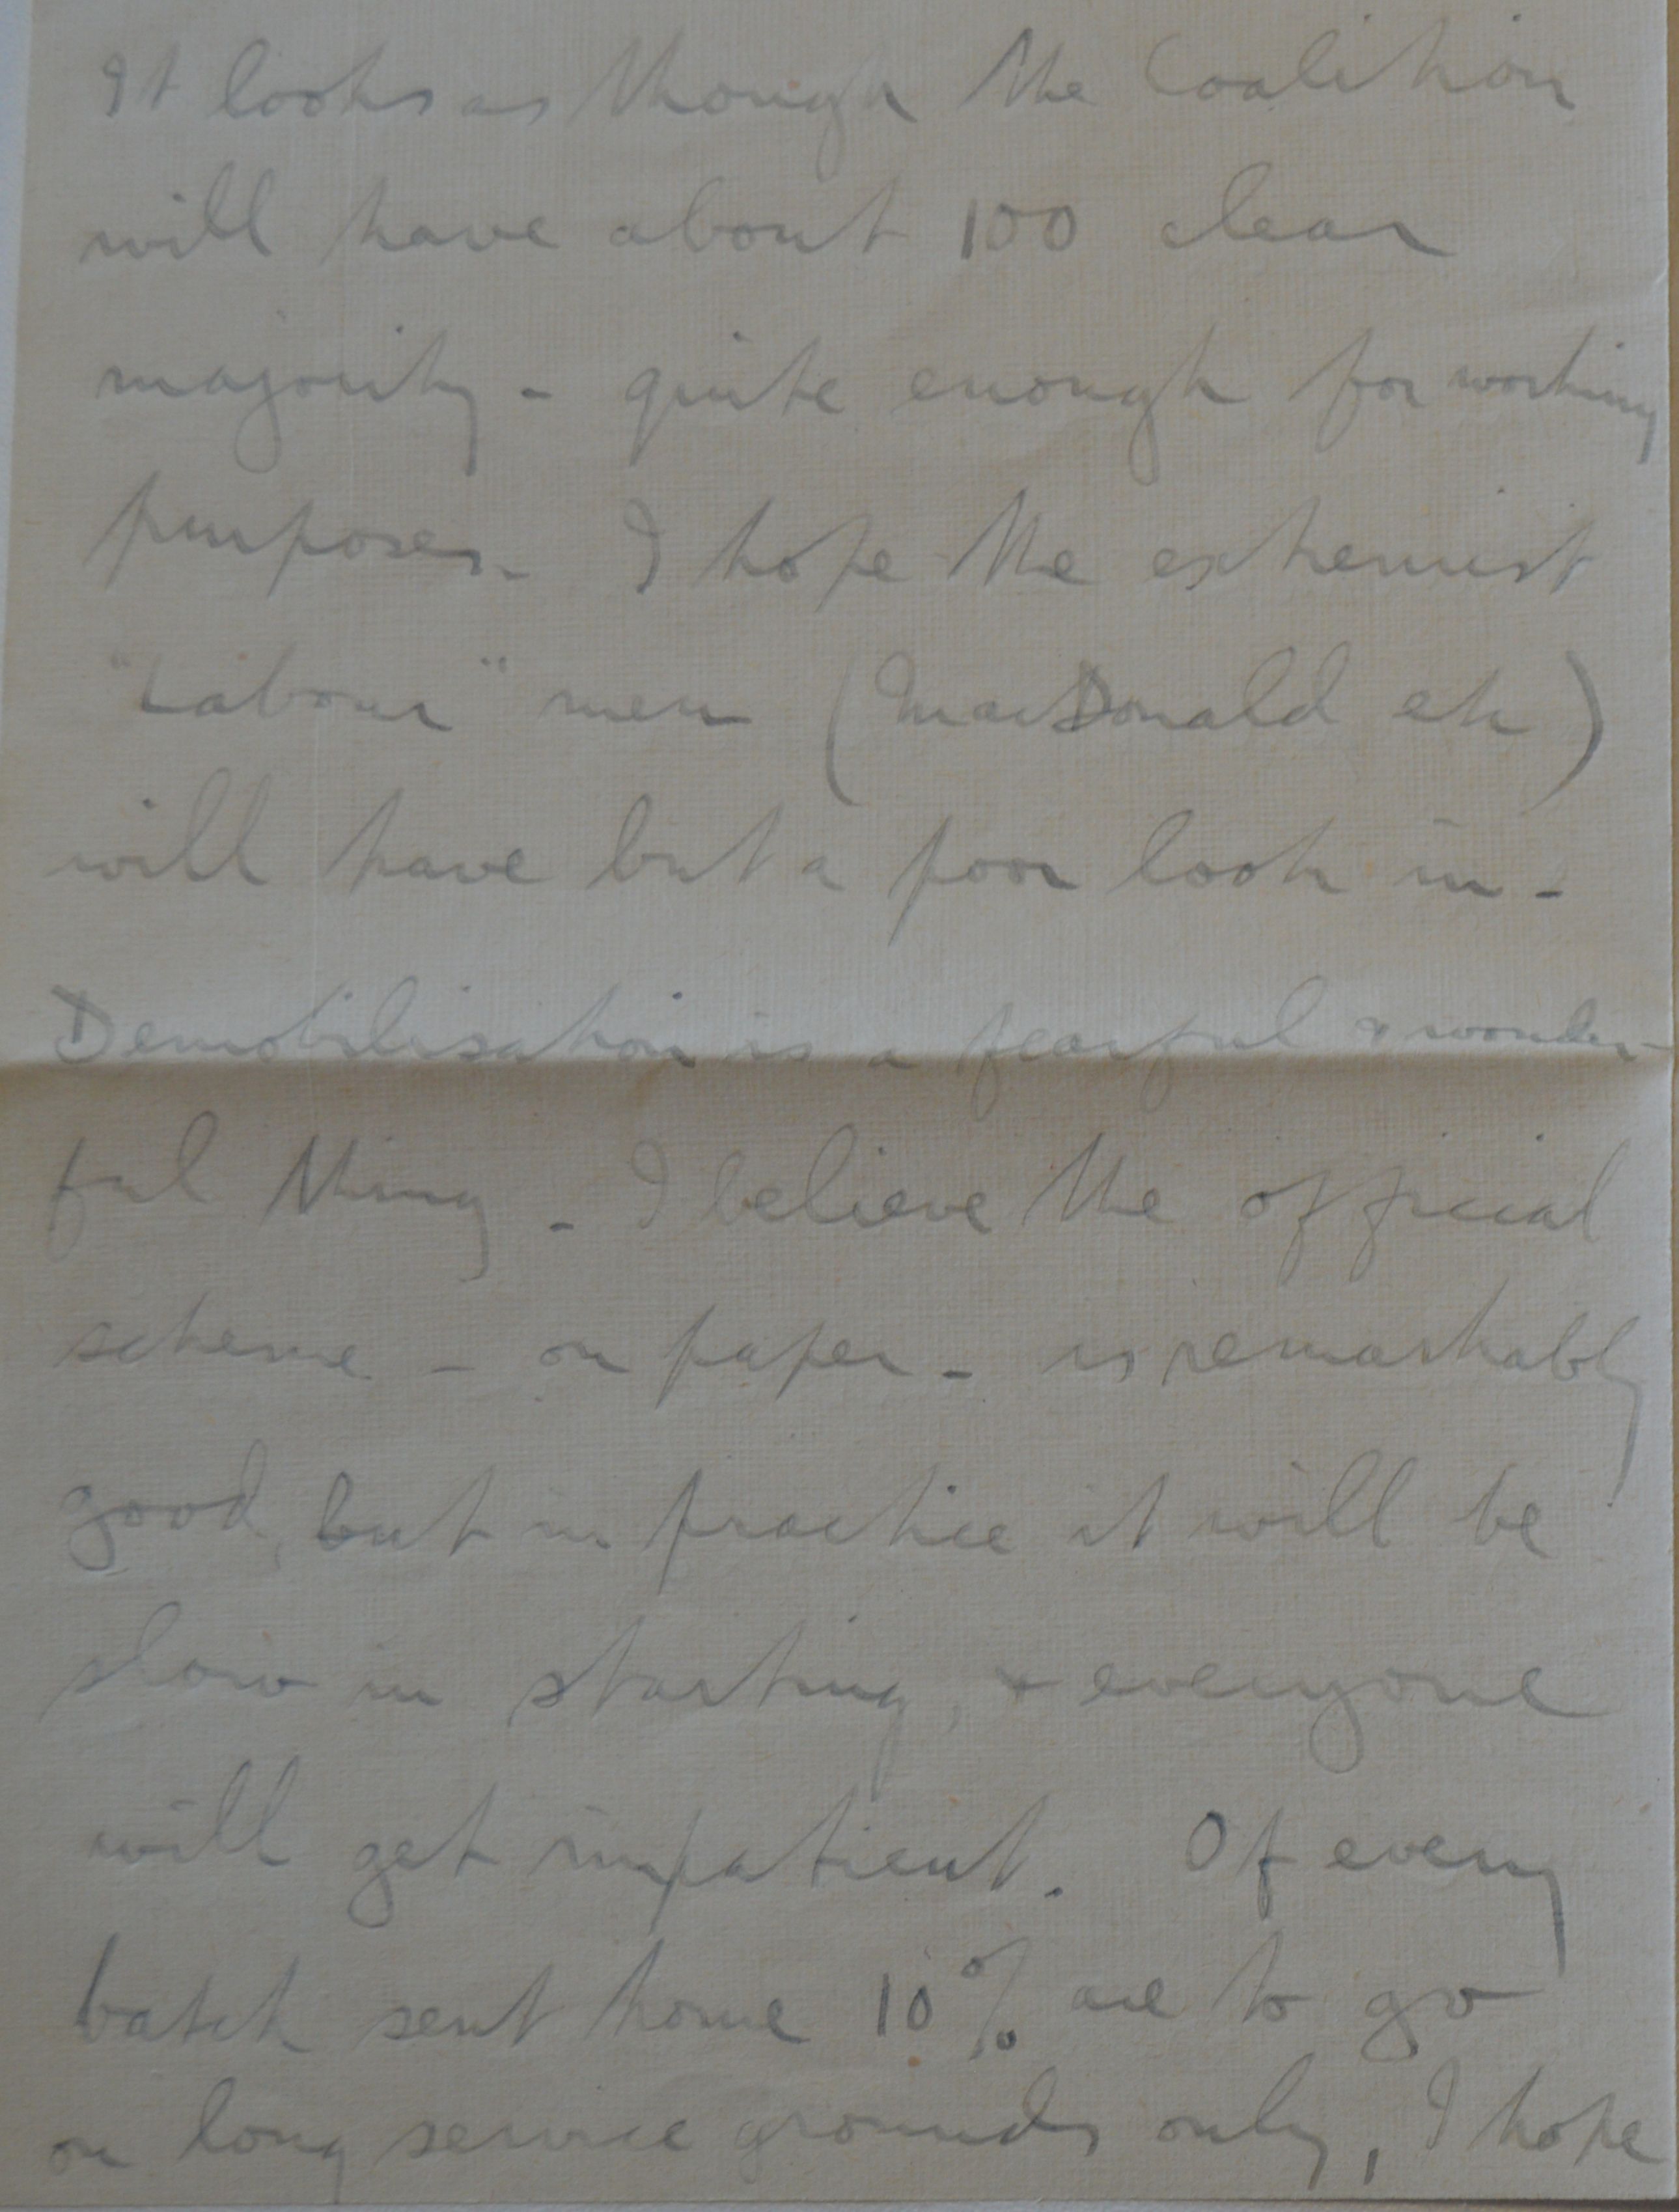 It looks as though the Coalition
will have about 100 clear
majority - quite enough for working
purposes - I hope the extremist
"Labour" men (MacDonald etc)
will have but a poor look in -
Demobilisation is a fearful & wonder-
ful thing - I believe the official
scheme - on paper - is remarkably
good, but in practice it will be
slow in starting, & everyone
will get impatient. Of every
batch sent home 10% are to go
on long service grounds only, I hope